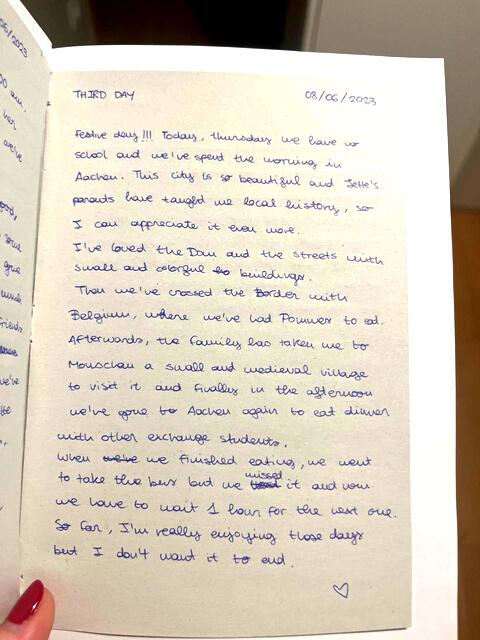 THIRD DAY 08/06/2023
Festive day!!! Today, thursday we have no
school and we've spent the morning in
Aachen. This city is so beautiful and Jette's
parents have taught me local history, so
I can appreciate it even more.
I've loved the Dom and the streets with
small and colorful buildings.
Then we've crossed the Border with
Belgium, where we've had Pommes to eat.
Afterwards, the family has taken me to
Monschau a small and medieval village
to visit it and finally in the afternoon
we've gone to Aachen again to eat dinner
with other exchange students.
When we've we finished eating, we went
to take the bus but we missed it and now
we have to wait 1 hour for the next one.
So far, I'm really enjoying those days
but I don't want it to end.